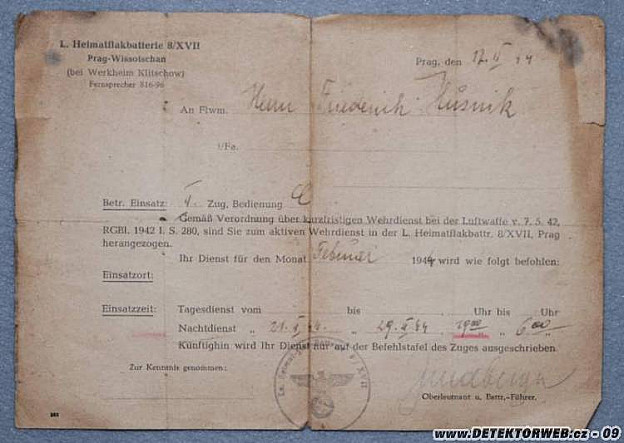 L. Heimatflakbatterie 8/XVII
Prag-Wissotschan
(bei Werkheim Klitschow)
Fernsprecher 816-96
Prag, den 17. II 44
An Flwm. Herrn Friederich Husnik
i/Fa.
Betr. Einsatz: I. Zug, Bedienung C
Gemäß Verordnung über kurzfristigen Wehrdienst bei der Luftwaffe v. 7. 5. 42,
RGBl. 1942 I. S. 280, sind Sie zum aktiven Wehrdienst in der L. Heimatflakbattr. 8/XVII, Prag
herangezogen.
Ihr Dienst für den Monat Februar 1944 wird wie folgt befohlen:
Einsatzort:
Einsatzzeit: Tagesdienst vom bis Uhr bis Uhr
Nachtdienst „ 21. II 44. „ 29. II 44 19 00 „ 6 00 „
Künftighin wird Ihr Dienst nur auf der Befehlstafel des Zuges ausgeschrieben.
Zur Kenntnis genommen:
Oberleutnant u. Battr.-Führer.
www.DETEKTORWEB.cz - 09